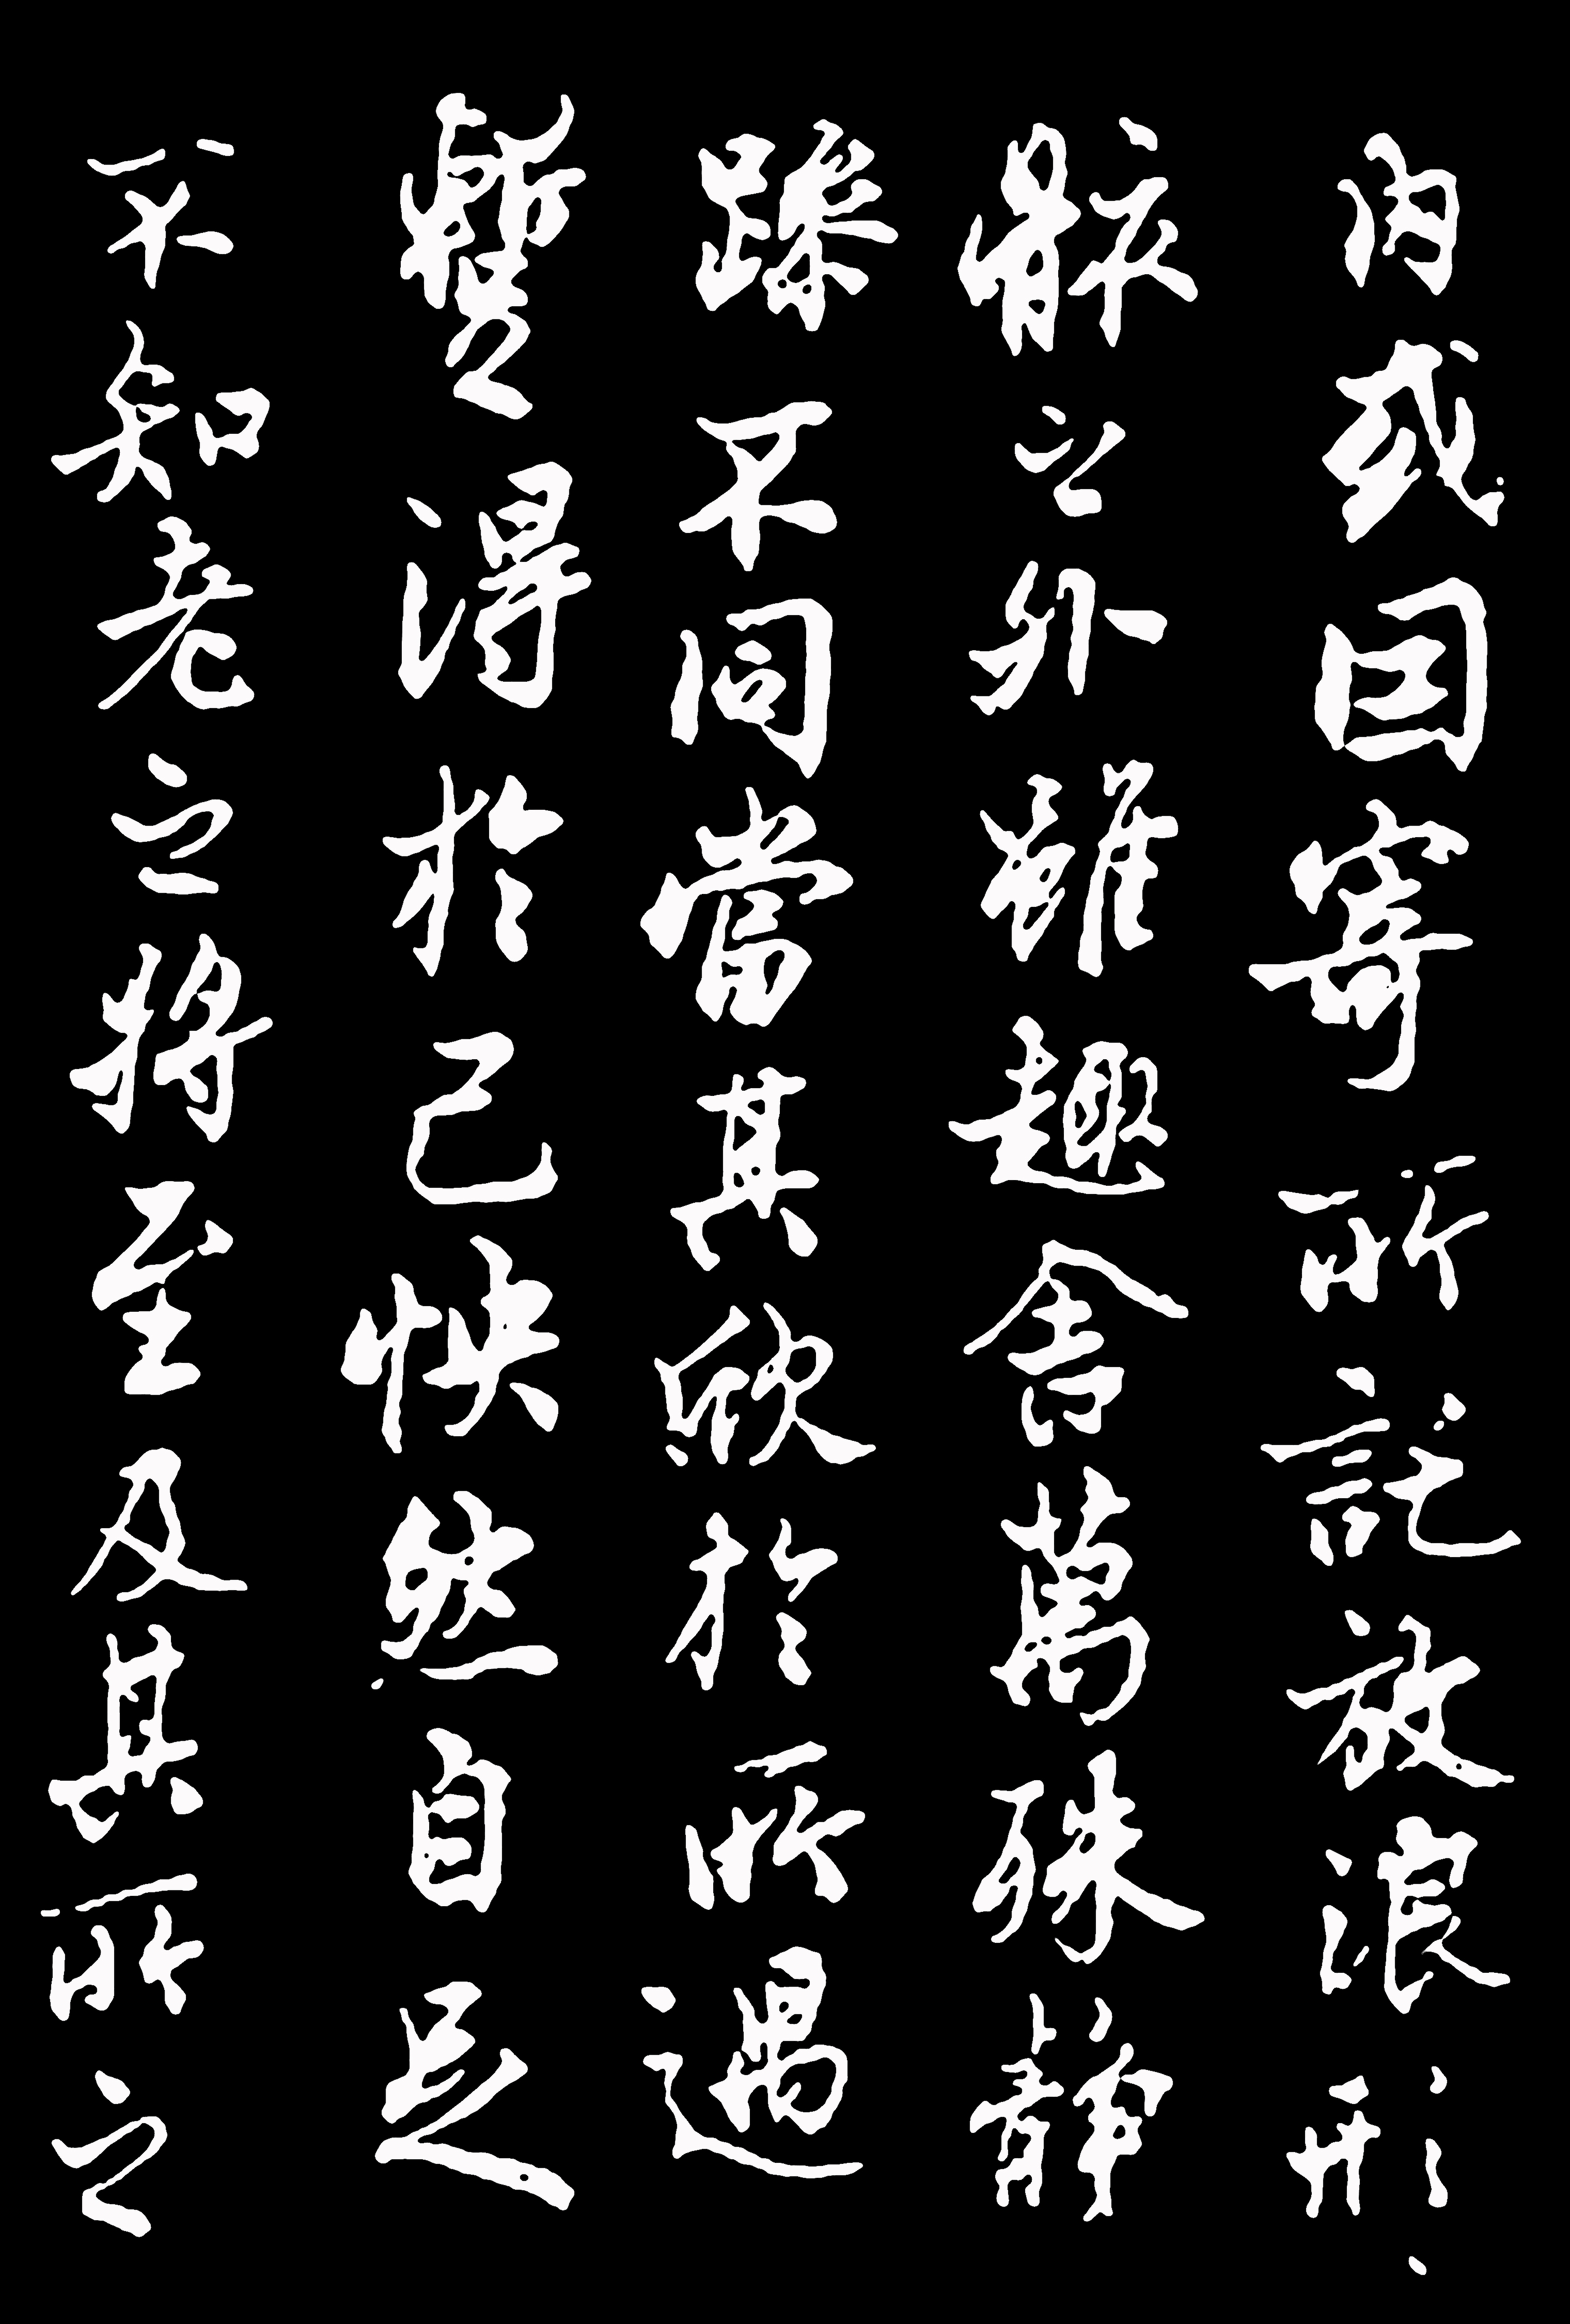 內或因寄所託放浪形
骸之外雖趣舍萬殊靜
躁不同當其欣於所遇
暫得於己快然自足
不知老之將至及其所之